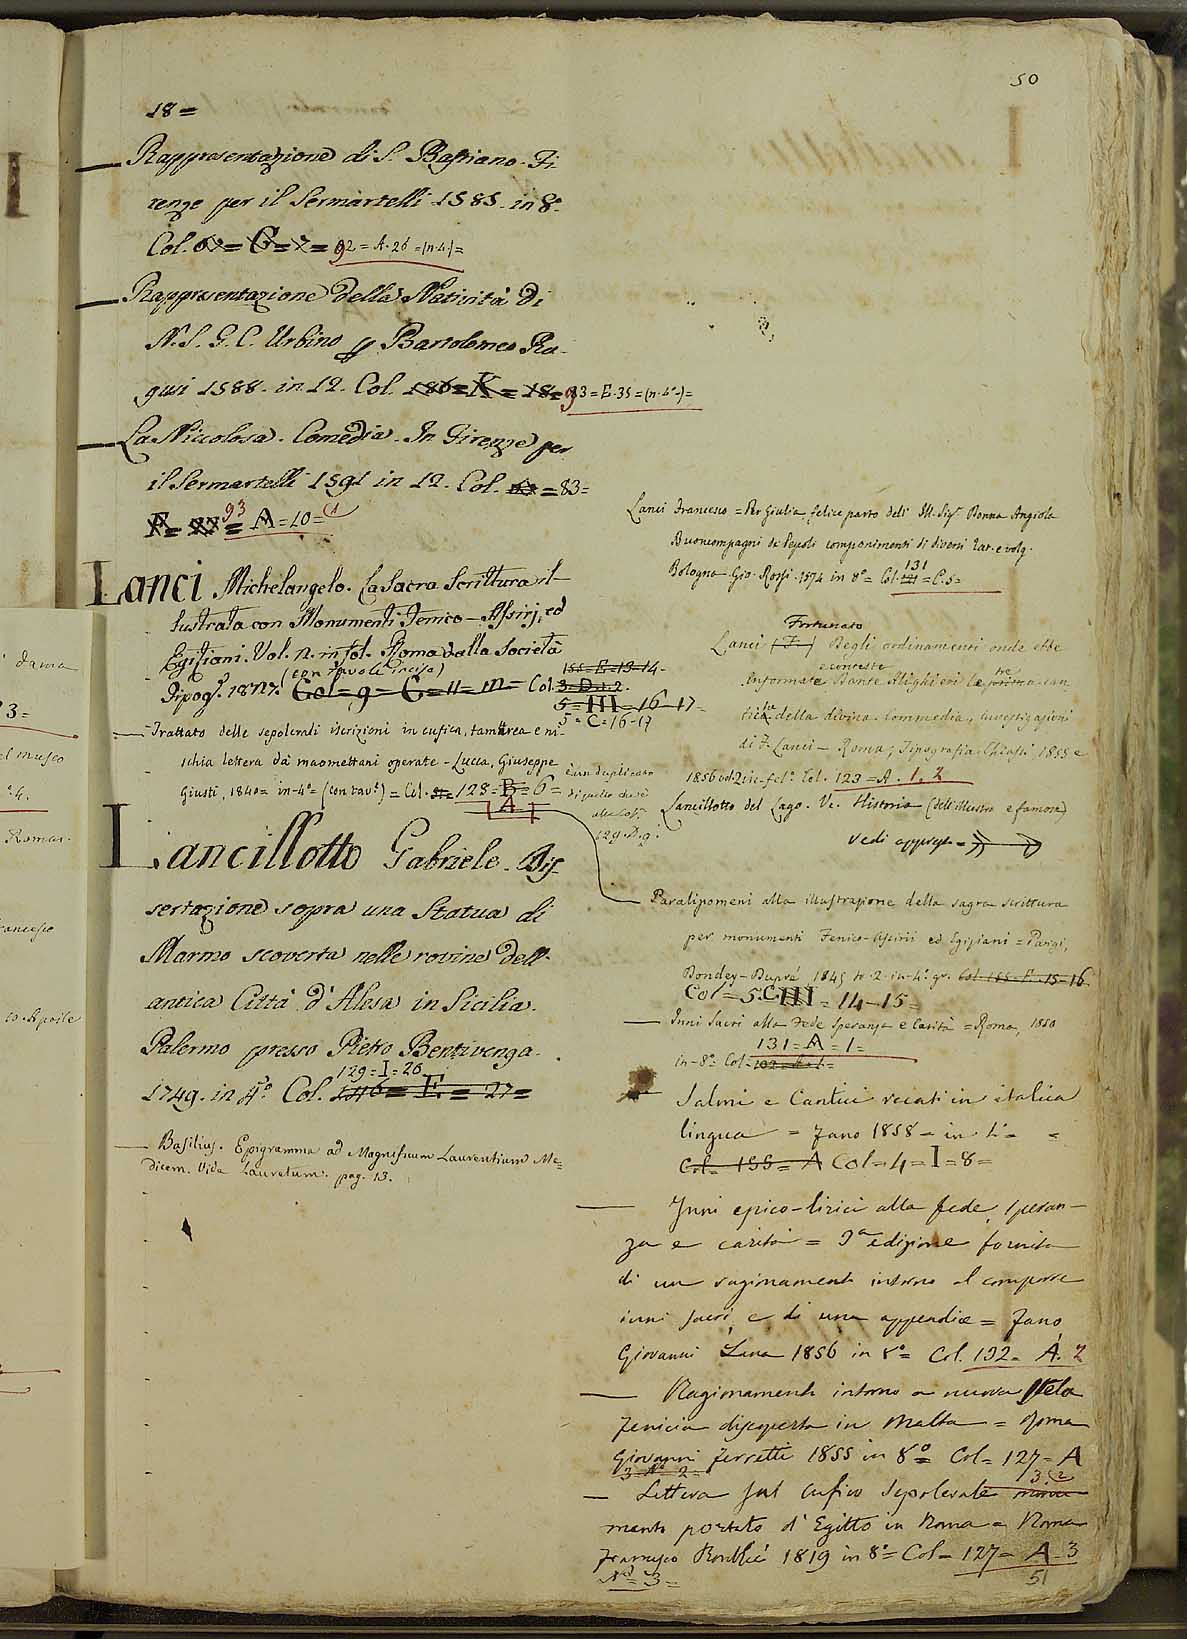 50
18=
Rappresentazione di S. Bastiano. Fi
renze per il Sermartelli 1585. in 8º
Col. 62= G=7= 92=A.26=(n.4)=
Rappresentazione della Natività di
N.S.G.C. Urbino p Bartolomeo Ra-
gusi 1588. in 12. Col. 186=K=18= 93=E.35=(n.4º)=
La Niccolosa. Comedia. In Firenze per
il Sermartelli 1591 in 12. Col. =83=
93
F= = A=10=
Lanci Michelangelo. La Sacra Scrittura il-
lustrata con Monumenti Fenico-Assirj, ed
Egiziani. Vol. n. in fol. Roma dalla Società
(con tavole incise)
Tipogª. 1827. Col=9=G=11=m= Col. 3=D.1.2.
155=E=13-14-
5=III=16-17-
5=C=16-17
Trattato delle sepolcrali iscrizioni in cufica, tamurea e ni-
schia lettera da maomettani operate - Lucca, Giuseppe
Giusti, 1840= in-4º= (con tavº.)= Col. 128=B=6=
A
è un duplicato
di quello che è
alla Colº.
129.A.9.
Lancillotto Gabriele. Dis-
sertazione sopra una Statua di
Marmo scoverta nelle rovine dell-
antica Città d'Alesa in Sicilia.
Palermo presso Pietro Bentivenga.
129=I=26
1749. in 4º. Col. 146=E.=27=
Basilius. Epigramma ad Magnificum Laurentium Me=
dicem. Vide Lauretum. pag. 13.
Lanci Francesco = Per Giulia, felice parto dell Ill. Sigª Donna Angiola
Buoncompagni de Pepoli componimenti di diversi lat. e volg.
131
Bologna Gio. Rossi. 1574 in 8º= Col. =C.5=
Fortunato
Lanci (F.) Degli ordinamenti onde ebbe
conteste
informate Dante Alighieri la prima can
tica della divina Commedia, investigazioni
di F. Lanci - Roma, Tipografia Chiassi 1855 e
1856 vol. 2 in-fol. Col. 123=A. 1, 2
Lancillotto del Lago. V. Historia (dell'illustre e famosa)
Vedi appresso =
Paralipomeni alla illustrazione della sagra scrittura
per monumenti Fenico-Assirii ed Egiziani = Parigi,
Dondey-Dupré 1845 to. 2. in-4º. gr. Col. 155=F.15-16
Col=5.C.III=14-15=
Inni Sacri alla Fede Speranza e Carità =Roma, 1850
131=A=1=
in-8º= Col.
Salmi e Cantici recati in italica
lingua = Fano 1858 = in =
Col= 155=A Col=4=I=8=
Inni epico-lirici alla fede, speran-
za e carità = 3ª edizione fornita
di un ragionamento intorno al comporre
inni sacri, e di una appendice = Fano
Giovanni Lana 1856 in 8º= Col. 132= A. 2
Ragionamento intorno a nuova stela
fenicia discoperta in Malta = Roma
Giovanni Ferretti 1855 in 8º= Col= 127=A
3 Nº 2=
3 (2
Lettera sul cufico sepolcrale monu
mento portato d'Egitto in Roma = Roma
Francesco Bourliè 1819 in 8º= Col= 127= A-3
Nº=3=
51